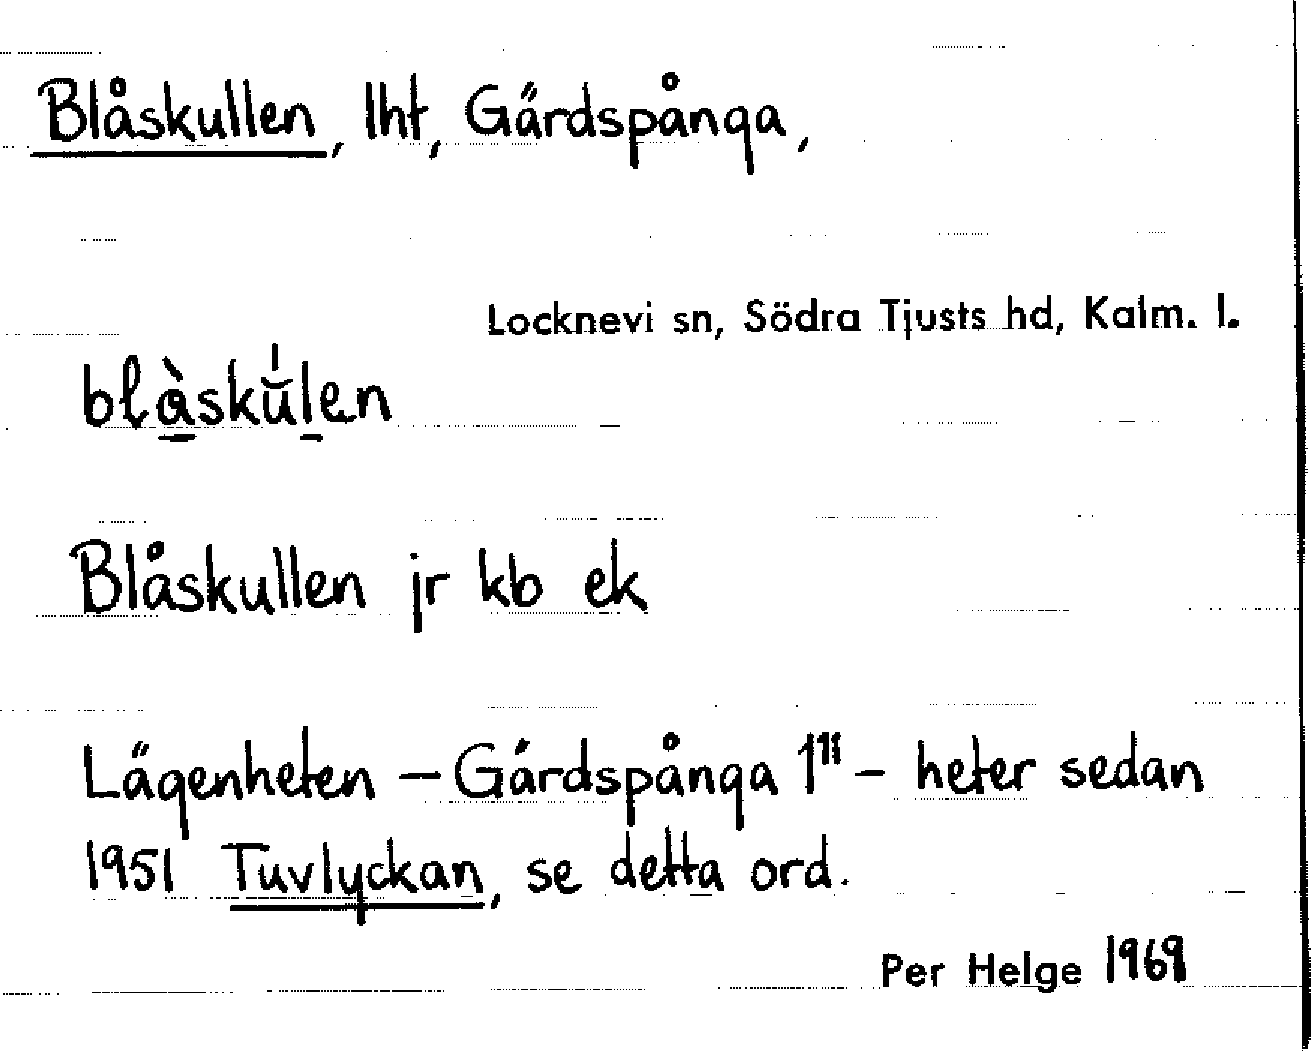 Blåskullen, lht, Gärdspånga,
Locknevi sn, Södra Tjusts hd, Kalm. l.
Blåskullen jr kb ek
Lägenheten – Gärdspånga 1¹¹ – heter sedan
1951 Tuvlyckan, se detta ord.
Per Helge 1969